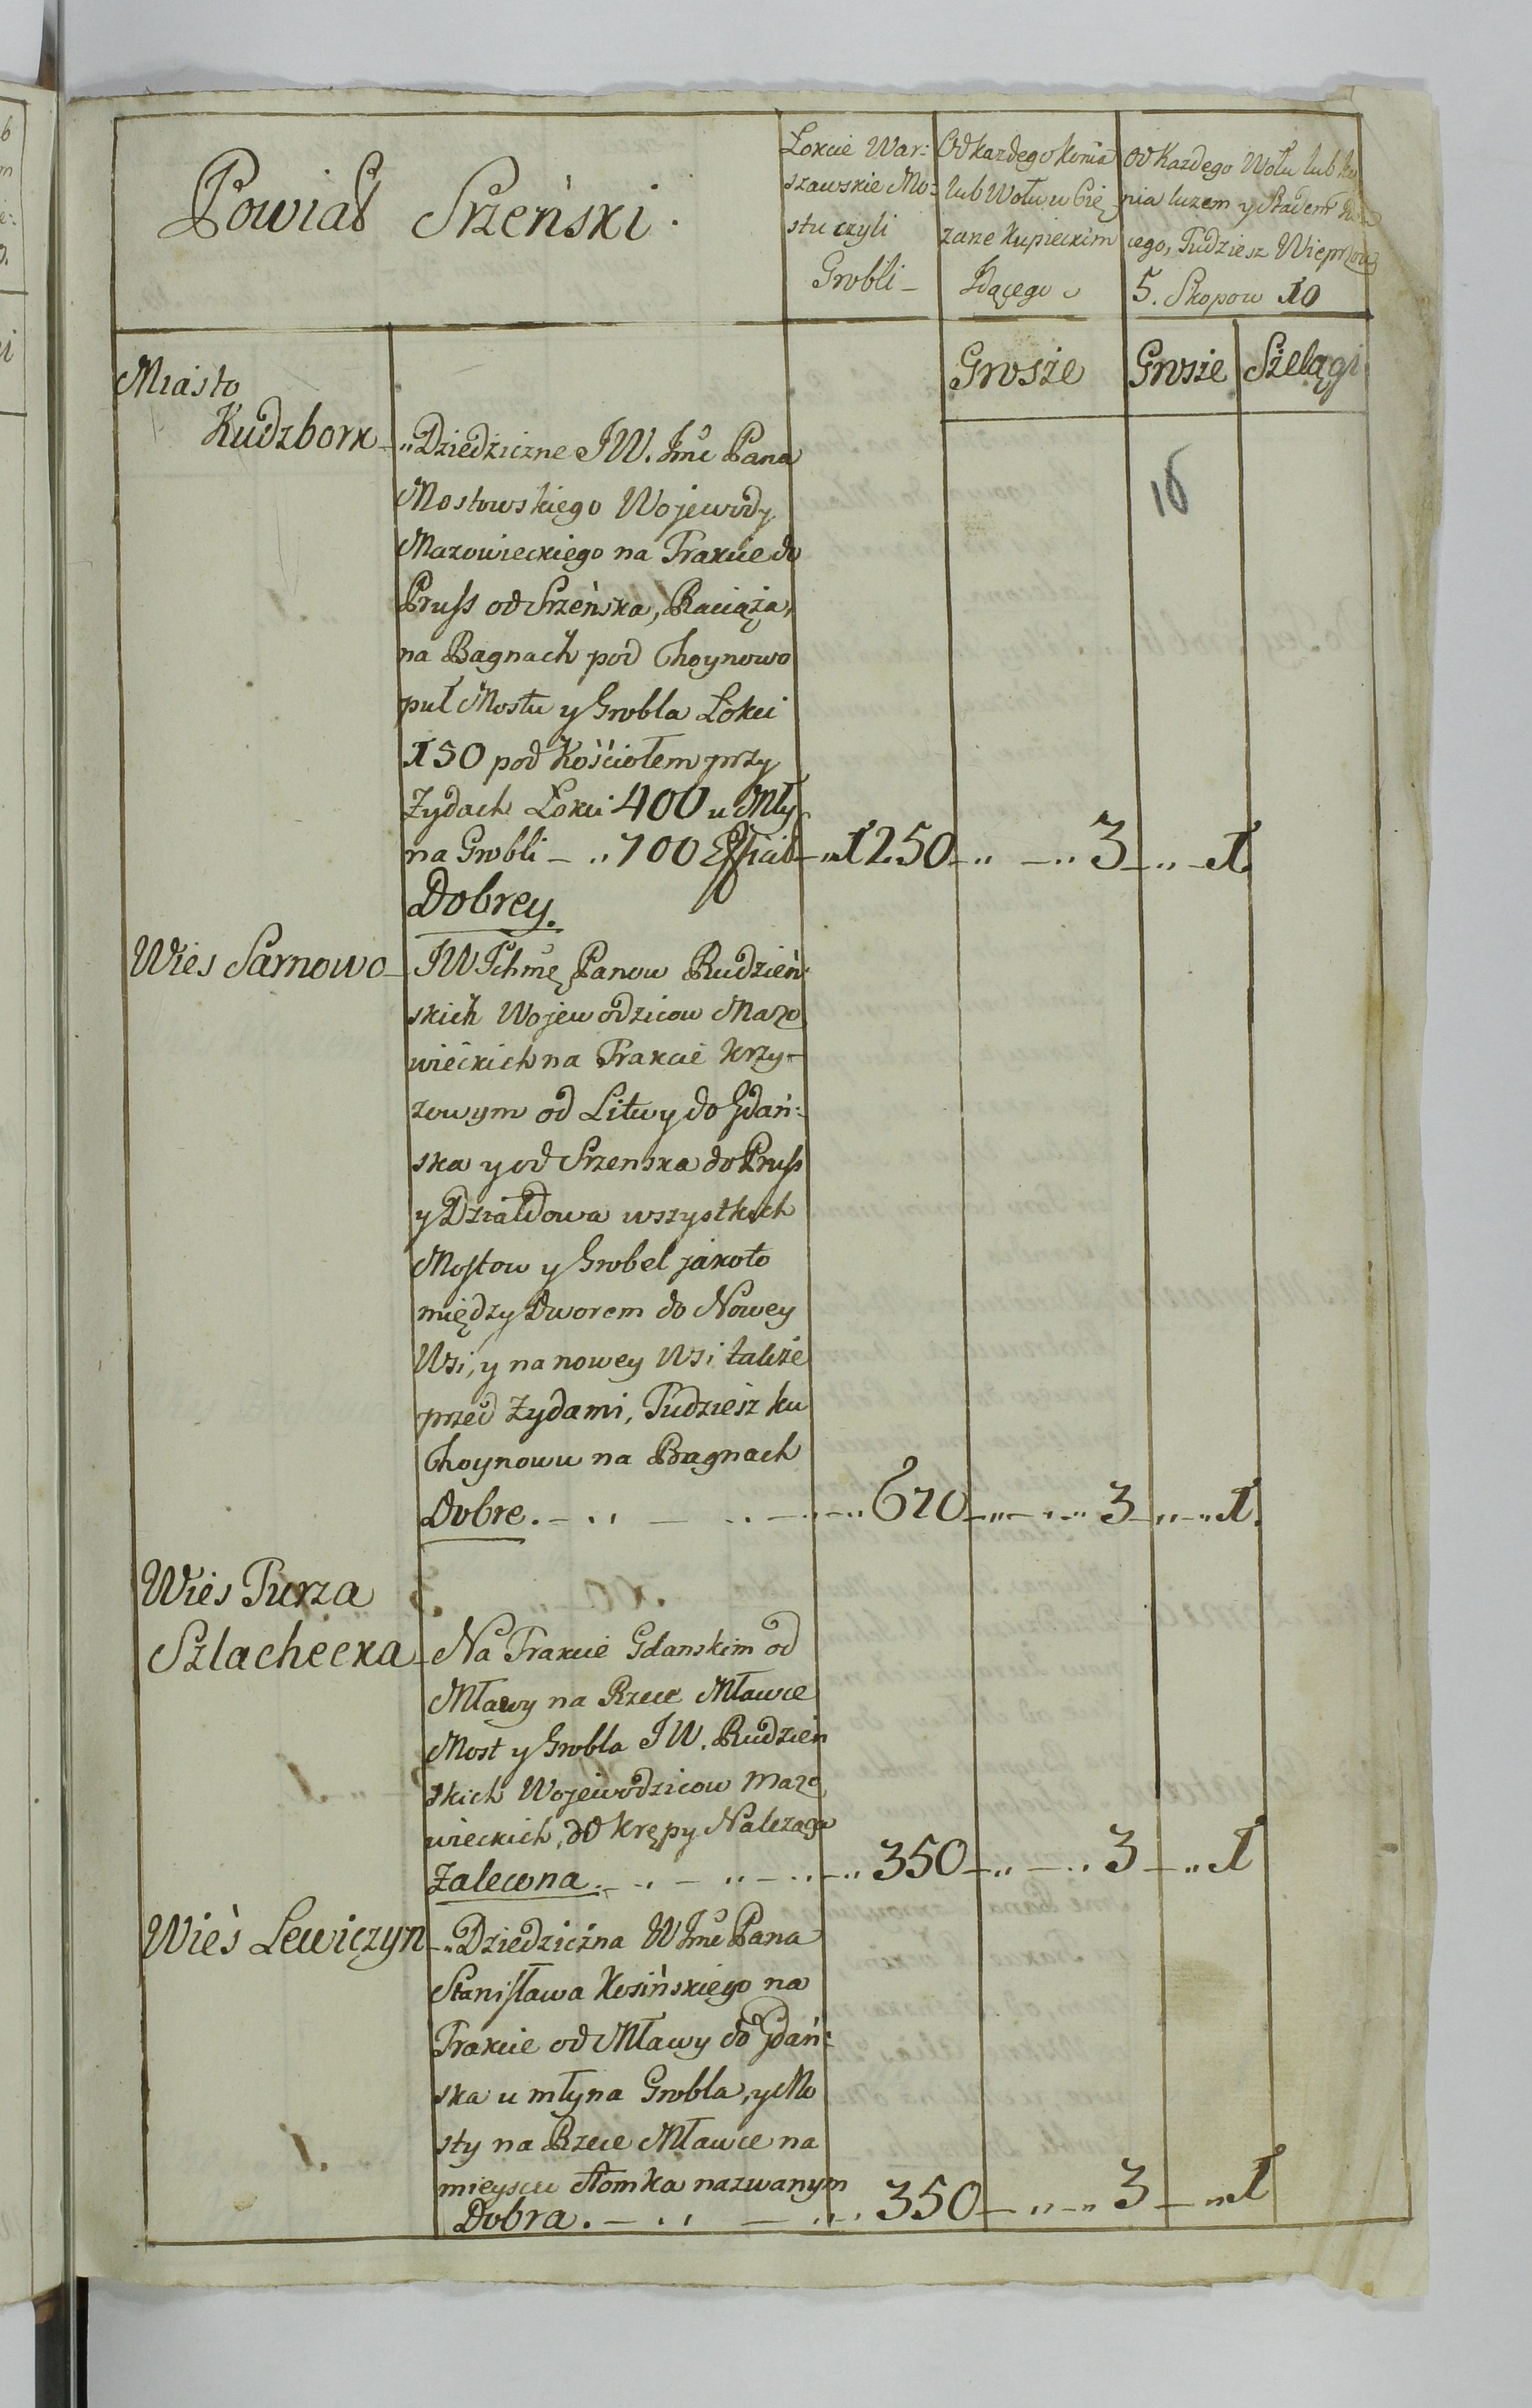 Powiat Srzeński.
Łokcie War:
szawskie Mo:
stu czyli
Grobli –
Od każdego konia
lub Wołu w Cię
żarze kupieckim
Idącego
Od Każdego Wołu lub Ko
nia luzem y Stadem
cego, Tudziesz Wieprzow
5. Skopow 10
Grosze Grosze Szelągi
16
Miasto
Kudzbork – „Dziedziczne JW. Jmć Pana
Mostowskiego Wojewody
Mazowieckiego na Trakcie do
Pruss od Srzeńska, Raciąża,
na Bagnach pod Choynowo
puł Mostu y Grobla Łokci
150 pod Kościołem przy
Zydach Łokci 400 u Mły
na Grobli – „ 700 Efficit – „ 1250 – „ – „ 3 – „ – 1.
Dobrey.
Wies Sarnowo – JW Ichmć Panow Rudzień:
skich Wojewodzicow Mazo
wieckich na Trakcie krzy–
zowym od Litwy do Gdań:
ska y od Srzenska do Pruss
y Działdowa wszystkich
Mostow y Grobel jakoto
między Dworem do Nowey
Wsi, y na nowey Wsi także
przed Zydami, Tudziesz ku
Choynowu na Bagnach
Dobre. – „ – „ – „ – „ 670 – „ – „ – „ 3 – „ – „ 1.
Wies Turza
Szlachecka – Na Trakcie Gdanskim od
Mławy na Rzece Mławce
Most y Grobla JW. Rudzień
skich Wojewodzicow Mazo
wieckich, do Krępy Nalezaga
Zalewna. – „ – „ – „ – „ 350 – „ – „ 3 – „ 1
Wieś Lewiczyn – „Dziedziczna W Jmć Pana
Stanisława Kosińskiego na
Trakcie od Mławy do Gdań:
ska u młyna Grobla, y Mo
sty na Rzece Mławce na
mieyscu Słomka nazwanym
Dobra. – „ – „ – „ 350 – „ – „ 3 – „ 1